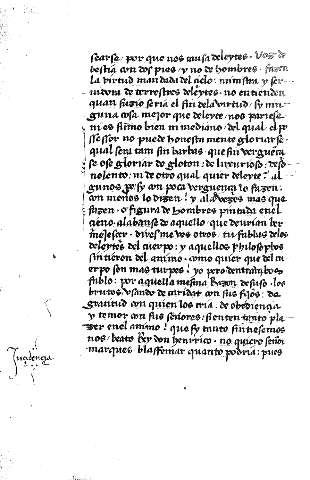 searse / por que nos causa deleytes . Voz de
bestia con dos pies / y no de hombres . fazen
la virtud mandada del cielo : ministra y ser
uidora de terrestres deleytes . no entienden
quan suzio seria el fin dela virtud / sy nin
guna cosa mejor que deleyte / nos pariese
ni es firmo bien ni mediano / del qual . el po
sessor no puede honesta mente gloriarse
qual sera tam sin barbas . que sin verguença
se ose gloriar de gloton : de luxurioso : de so
nolento / ni de otro qual quier deleyte ? al
gunos por sy con poca verguença lo fazen :
con menos lo dizen / y a las vezes mas que
fazen . o figura de hombres pintada en el
cieno . alabança de aquello . que deurian ser
menester . dires me vos otros . tu fablas delos
deleytes del cuerpo : y aquellos philosophos
sintieron del animo . como quier que del cu
erpo son mas turpes / yo pero de entrambos
fablo : por aquella mesma Razon de suso . los
brutos vsando de caridat con sus fijos : de
gratitud con quien los cria . de obediençia
y temor con sus señores / sienten tanto pla
zer en el animo / que sy tanto sintiesemos
nos / beato Rey don henrrico . no quiero señor
marques blasfemar quanto podria / pues
Incidencia